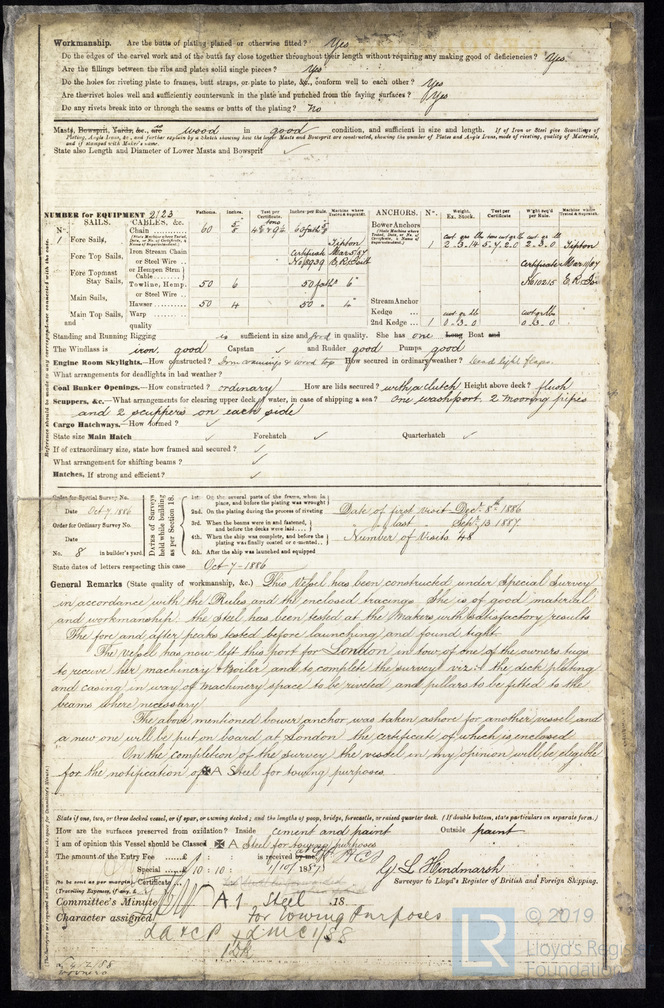 Workmanship. Are the butts of plating planed or otherwise fitted? Yes
Do the edges of the carvel work and of the butts fay close together throughout their length without requiring any making good of deficiencies? Yes.
Are the fillings between the ribs and plates solid single pieces? Yes
Do the holes for riveting plate to frames, butt straps, or plate to plate, &c., conform well to each other? Yes
Are the rivet holes well and sufficiently countersunk in the plate and punched from the faying surfaces? Yes
Do any rivets break into or through the seams or butts of the plating? No
Masts, Bowsprit, Yards, &c., are wood in good condition, and sufficient in size and length. If of Iron or Steel give Scantlings of
Plating, Angle Irons, &c., and further explain by a Sketch showing how the Masts and Bowsprit are constructed, showing the number of Plates and Angle Irons, mode of riveting, quality of Materials,
and if stamped with Maker's name.
State also Length and Diameter of Lower Masts and Bowsprit
NUMBER for EQUIPMENT 2123
SAILS. CABLES, &c. Fathoms. Inches. Test per Certificate. Inches per Rule. Machine where Tested & Superintd. ANCHORS. N°. Weight. Ex. Stock. Test per Certificate Weight req'd per Rule. Machine where Tested & Superintd.
N°. Chain 60 Bower Anchors
1 Fore Sails, Tipton 1 2.3.14 5.7.2.0 2.3.0 Tipton
Iron Stream Chain Certificate
Fore Top Sails, or Steel Wire Certificate
or Hempen Strm Cable
Fore Topmast Stay Sails, Towline, Hemp. 50 6 50 fath 6"
or Steel Wire
Main Sails, Hawser 50 4 50 " Stream Anchor
Main Top Sails, Warp Kedge
and quality 2nd Kedge 1 0.3.0 0.3.0
Standing and Running Rigging is sufficient in size and good in quality. She has one Long Boat and
The Windlass is iron, good Capstan ✓ and Rudder good Pumps good
Engine Room Skylights.—How constructed? Iron coamings & wood top How secured in ordinary weather? Dead light flaps.
What arrangements for deadlights in bad weather?
Coal Bunker Openings.—How constructed? ordinary How are lids secured? with a clutch Height above deck? flush
Scuppers, &c.—What arrangements for clearing upper deck of water, in case of shipping a sea? One washport 2 mooring pipes
and 2 scuppers on each side
Cargo Hatchways.—How formed? ✓
State size Main Hatch ✓ Forehatch ✓ Quarterhatch ✓
If of extraordinary size, state how framed and secured? ✓
What arrangement for shifting beams? ✓
Hatches, If strong and efficient? ✓
Order for Special Survey No.
Date Oct 7 1886
Order for Ordinary Survey No.
Date
No. 8 in builder's yard.
DATES of Surveys held while building as per Section 18.
1st. On the several parts of the frame, when in place, and before the plating was wrought
2nd. On the plating during the process of riveting
3rd. When the beams were in and fastened, and before the decks were laid
4th. When the ship was complete, and before the plating was finally coated or cemented
5th. After the ship was launched and equipped
Date of first visit Decr. 8th 1886
" " last " Sept. 13 1887
Number of Visits 48
State dates of letters respecting this case Oct-7-1886
General Remarks (State quality of workmanship, &c.) This Vessel has been constructed under Special Survey
in accordance with the Rules and the enclosed tracings. She is of good material
and workmanship. the steel has been tested at the Makers with satisfactory results
The fore and after peaks tested before launching and found tight.
The Vessel has now left this port for London in tow of one of the owners tugs
to receive her machinery & Boiler and to complete the survey viz: the deck plating
and casing in way of Machinery space to be riveted and pillars to be fitted to the
beams where necessary
The above mentioned bower anchor was taken ashore for another vessel and
a new one will be put on board at London the certificate of which is enclosed
On the completion of the survey the vessel in my opinion will be eligible
for the notification of ✠A Steel for towing purposes
State if one, two, or three decked vessel, or if spar, or awning decked; and the lengths of poop, bridge, forecastle, or raised quarter deck. (If double bottom, state particulars on separate form.)
How are the surfaces preserved from oxidation? Inside cement and paint Outside paint
I am of opinion this Vessel should be Classed ✠ A Steel for towing purposes
The amount of the Entry Fee £ is received by me,
Special £ 10 : 10 : 1/10/1887
(to be sent as per margin.) Certificate
(Travelling Expenses, if any, £
G. L. Hindmarsh
Surveyor to Lloyd's Register of British and Foreign Shipping.
Committee's Minute 18
Character assigned A1 Steel
for Towing Purposes
LA & CP & LMC 1/88
1 Dk
© 2019
Lloyd's Register
Foundation
LR